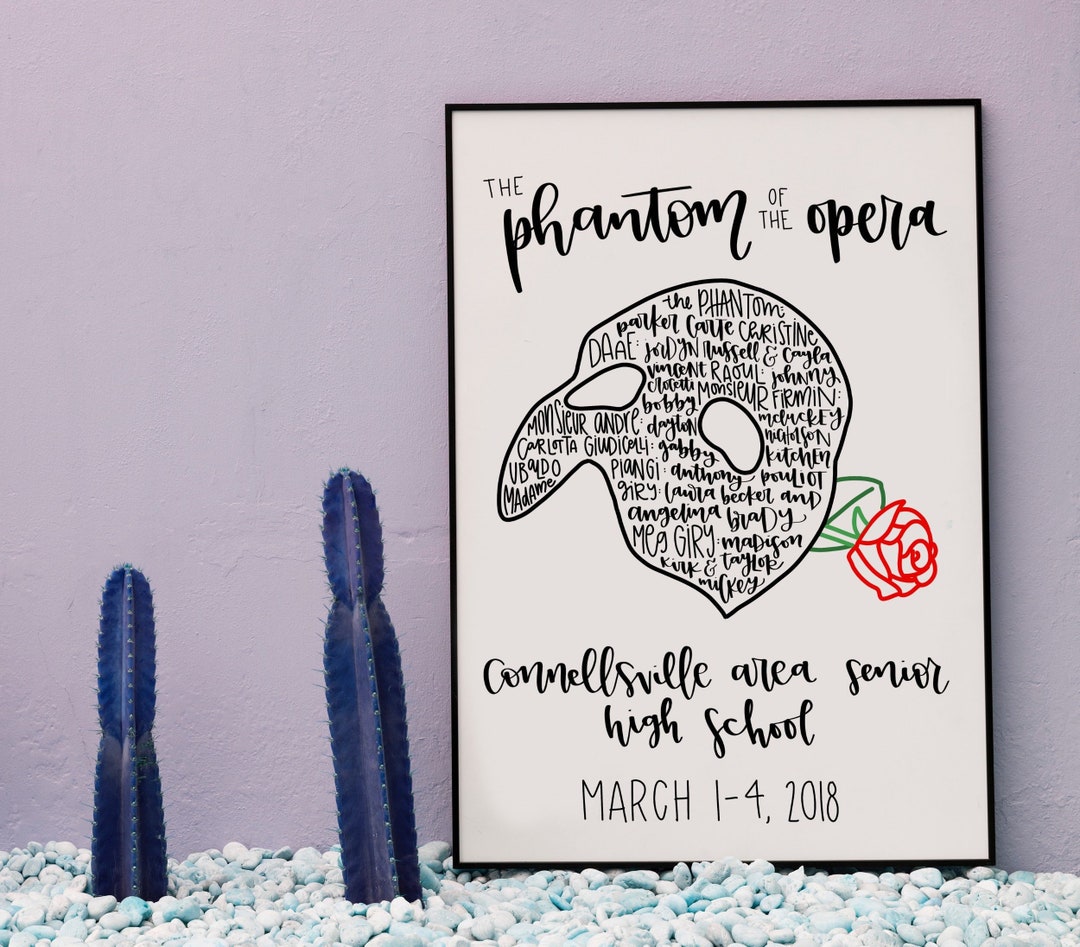 THE phantom OF THE opera
the PHANTOM:
parker carte CHRISTINE
DAAE: jorDYN russell & Cayla
vincent RAOUL: johnny
crocetti MONSIEUR FIRMIN:
bobby mcluckey
MONSIEUR andre: dayton nicholson
CARLOTTA GIUDICELLI: gabby kitchen
UBALDO PIANGI: anthony pouliot
MADAME GIRY: laura becker and
angelina brady
MEG GIRY: madison
kirk & taylor
mickey
connellsville area senior
high school
MARCH 1-4, 2018